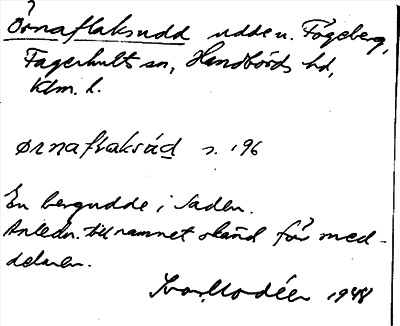 Örnaflaksudd udde u. Fågeberg,
Fagerhults sn, Handbörds hd,
Klm. l.
ørnaflaksúd s. 196
En bergudde i sjaden.
Anledn. till namnet okänd för med-
delaren.
Ivar Modéer 1948